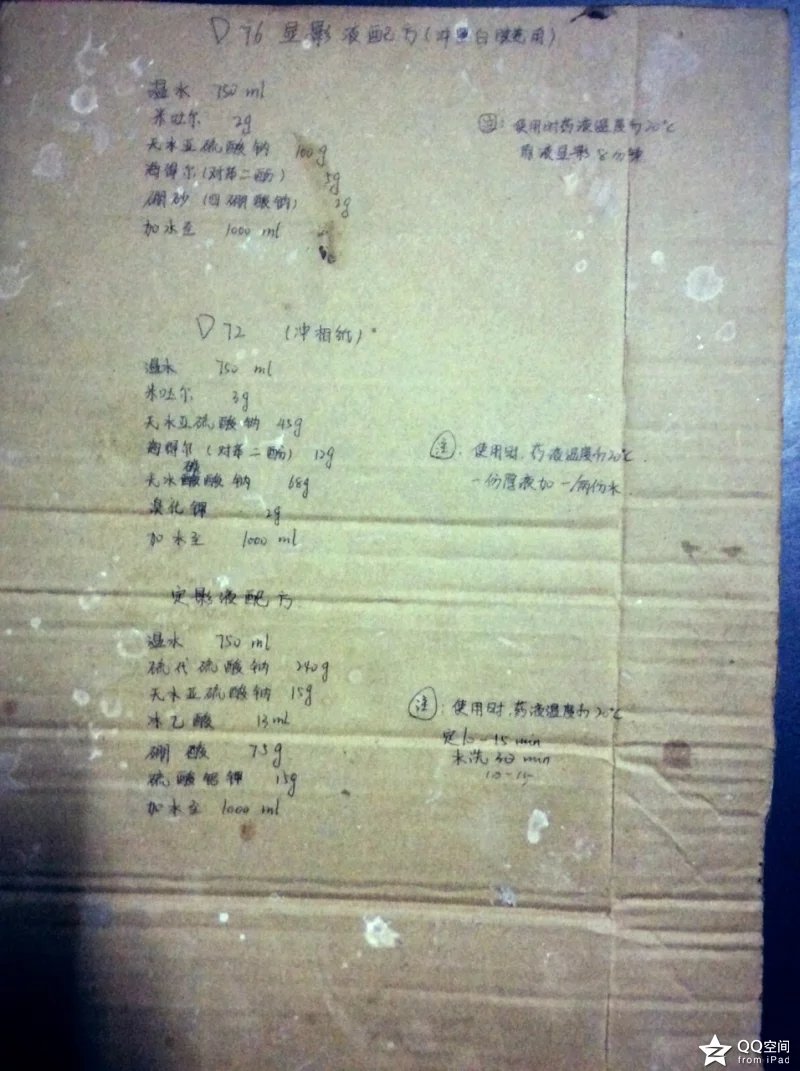 D 76 显影液配方(冲黑白胶卷用)
温水 750 ml
米吐尔 2g
无水亚硫酸钠 100g
海得尔(对苯二酚) 5g
硼砂(四硼酸钠) 2g
加水至 1000 ml
注: 使用时药液温度为20℃
原液显影 8分钟
D 72 (冲相纸)
温水 750 ml
米吐尔 3g
无水亚硫酸钠 45g
海得尔(对苯二酚) 12g
无水碳酸钠 68g
溴化钾 2g
加水至 1000 ml
注: 使用时,药液温度为20℃.
一份原液加一/两份水
定影液配方
温水 750 ml
硫代硫酸钠 240g
无水亚硫酸钠 15g
冰乙酸 13ml
硼酸 7.5g
硫酸铝钾 15g
加水至 1000 ml
注: 使用时,药液温度为20℃
定10-15 min
水洗 30 min
10-15
QQ空间
from iPad